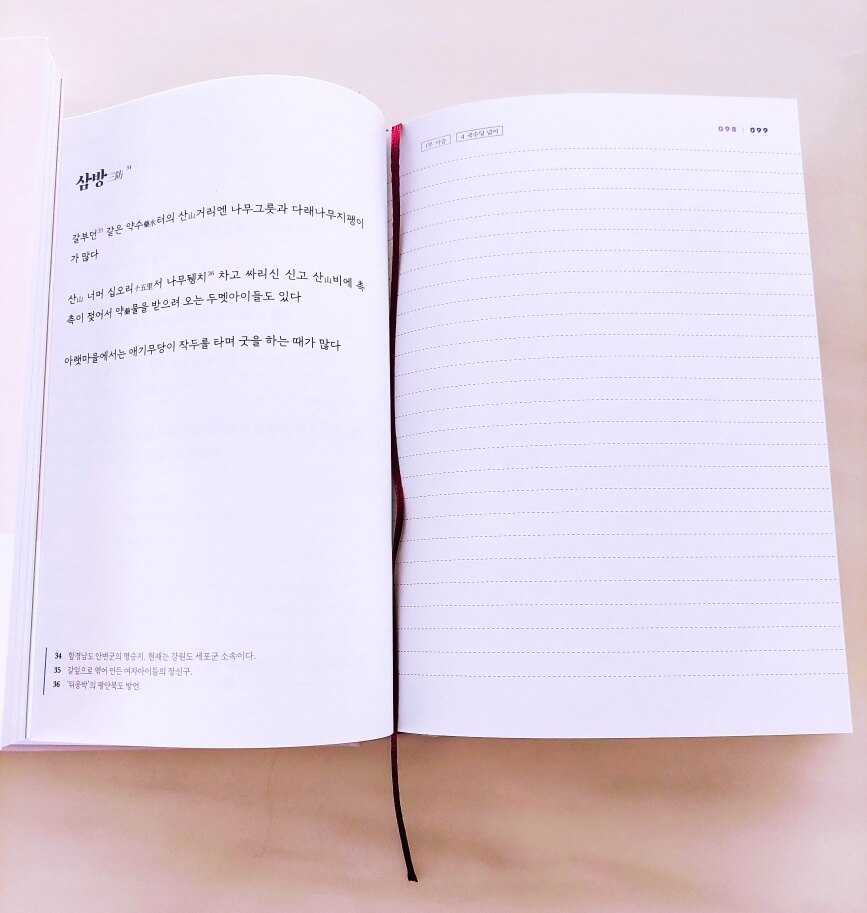 삼방三防34
갈부던35 같은 약수藥水터의 산山거리엔 나무그릇과 다래나무지팽이
가 많다
산山 너머 십오리十五里서 나무뒝치36 차고 싸리신 신고 산山비에 촉
촉이 젖어서 약藥물을 받으려 오는 두멧아이들도 있다
아랫마을에서는 애기무당이 작두를 타며 굿을 하는 때가 많다
34 함경남도 안변군의 명승지. 현재는 강원도 세포군 소속이다.
35 갈잎으로 엮어 만든 여자아이들의 장신구.
36 '뒤웅박'의 평안북도 방언.
1부 사슴
4 국수당 넘어
098 | 099